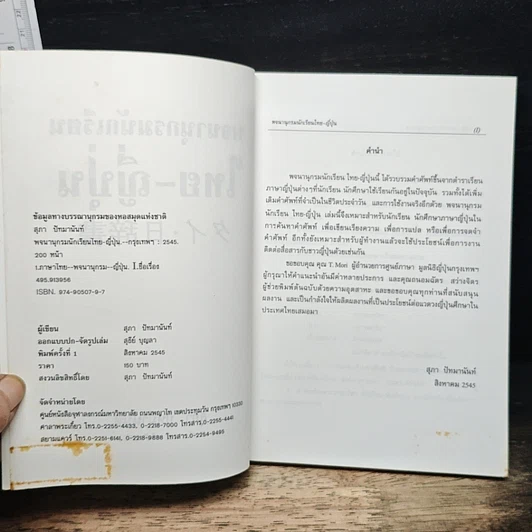 ข้อมูลทางบรรณานุกรมของหอสมุดแห่งชาติ
สุภา ปัทมานันท์
พจนานุกรมนักเรียนไทย-ญี่ปุ่น.-กรุงเทพฯ : 2545.
200 หน้า
1.ภาษาไทย--พจนานุกรม--ญี่ปุ่น. I.ชื่อเรื่อง
495.913956
ISBN. 974-90507-9-7
ผู้เขียน สุภา ปัทมานันท์
ออกแบบปก-จัดรูปเล่ม สุธีย์ บุญลา
พิมพ์ครั้งที่ 1 สิงหาคม 2545
ราคา 150 บาท
สงวนลิขสิทธิ์โดย สุภา ปัทมานันท์
จัดจำหน่ายโดย
ศูนย์หนังสือจุฬาลงกรณ์มหาวิทยาลัย ถนนพญาไท เขตปทุมวัน กรุงเทพฯ 10330
ศาลาพระเกี้ยว โทร.0-2255-4433, 0-2218-7000 โทรสาร.0-2255-4441
สยามสแควร์ โทร.0-2251-6141, 0-2218-9888 โทรสาร.0-2254-9495
พจนานุกรมนักเรียนไทย-ญี่ปุ่น (I)
คำนำ
พจนานุกรมนักเรียน ไทย-ญี่ปุ่นนี้ ได้รวบรวมคำศัพท์ขึ้นจากตำราเรียน
ภาษาญี่ปุ่นต่างๆที่นักเรียน นักศึกษาใช้เรียนกันอยู่ในปัจจุบัน รวมทั้งได้เพิ่ม
เติมคำศัพท์ที่จำเป็นในชีวิตประจำวัน และการใช้งานจริงอีกด้วย พจนานุกรม
นักเรียน ไทย-ญี่ปุ่น เล่มนี้จึงเหมาะสำหรับนักเรียน นักศึกษาภาษาญี่ปุ่นใน
การค้นหาคำศัพท์ เพื่อเขียนเรียงความ เพื่อการแปล หรือเพื่อการจดจำ
คำศัพท์ อีกทั้งยังเหมาะสำหรับผู้ทำงานแล้วจะใช้ประโยชน์เพื่อการงาน
ติดต่อสื่อสารกับชาวญี่ปุ่นด้วยเช่นกัน
ขอขอบคุณ คุณ T. Mori ผู้อำนวยการศูนย์ภาษา มูลนิธิญี่ปุ่นกรุงเทพฯ
ผู้กรุณาให้คำแนะนำอันมีค่าหลายประการ และคุณถนอมฉัตร สว่างจิตร
ผู้ช่วยพิมพ์ต้นฉบับด้วยความอุตสาหะ และขอขอบคุณทุกท่านที่สนับสนุน
ผลงาน และเป็นกำลังใจให้ผลิตผลงานที่เป็นประโยชน์ต่อแวดวงญี่ปุ่นศึกษาใน
ประเทศไทยเสมอมา
สุภา ปัทมานันท์
สิงหาคม 2545